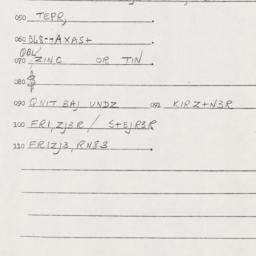 050 TEPR,
060 DL8--AXAS+
070 ZINC OR TIN
080
090 QNIT BAJ UNDZ 091 KIRZ+N3R
100 FRI,ZJ3R / S+EJR3R
110 FRIZJ3,RN83